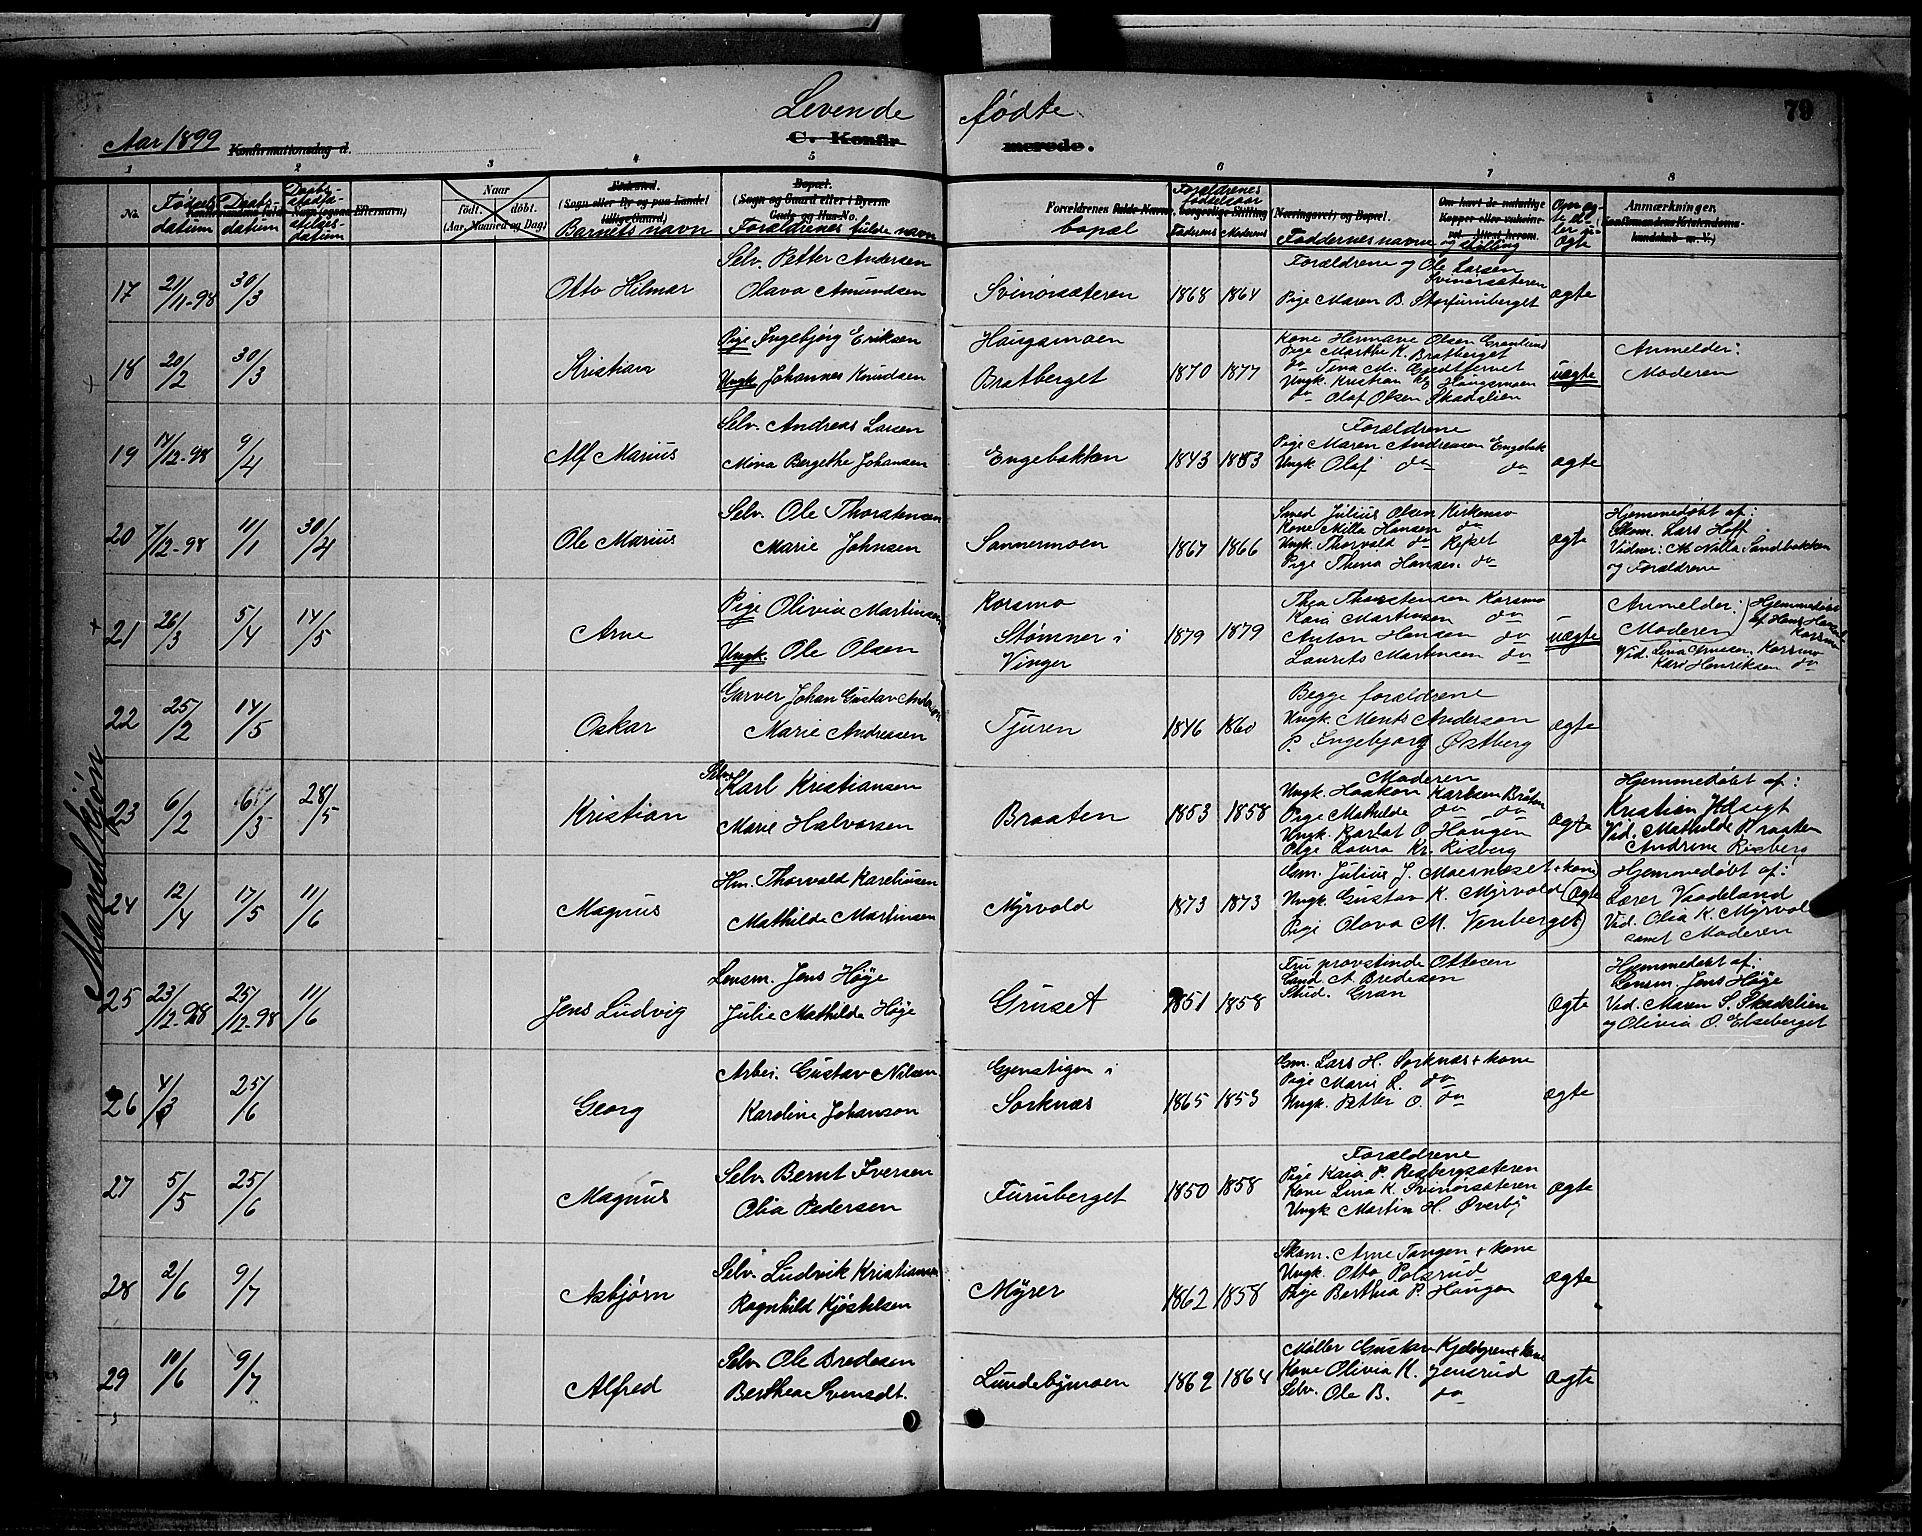 Levende fødte
79
Aar 1899 Konfirmationsdag d.
C. Konfirmerede.
1 2 3 4 5 6 7 8
No. Fødselsdatum Daabsdatum Daabsstadfæstelsesdatum
Naar født. døbt. (Aar, Maaned og Dag)
Fødested. (Sogn eller By og paa Landet tillige Gaard) Barnets navn
Bopæl. (Sogn og Gaard eller i Byerne Gade og Hus-No. Forældrenes fulde navn
Forældrenes fulde Navne, borgerlige Stilling (Næringsvei) og Bopæl. bopæl
Forældrenes fødselsaar Faderens Moderens
Faddernes navne og stilling
Om havt de naturlige Kopper eller vaksineret. Attest herom.
Om ægte eller uægte
Anmærkninger, Konfirmandens Kristendomskundskab m. V.)
Mandkjøn
17 21/11-98 30/3 Otto Hilmar
Selv. Petter Andersen
Olava Amundsen
Svinørsæteren 1868 1864
Forældrene og Ole Larsen
Svinørsæteren
Pige Maren B. Storfuruberget
ægte
18 20/2 30/3 Kristian
Pige Ingebjørg Eriksen
Ungk. Johannes Knudsen
Haugsmoen
Bratberget 1870 1877
Kone Hermane Olsen Granlund
Pige Marthe K. Bratberget
do Tina M.
Ungk. Kristian Haugsmoen
do Olaf Olsen Skadalien
uægte
Anmelder:
Moderen
19 17/12-98 9/4 Alf Marius
Selv. Andreas Larsen
Mina Bergethe Johansen
Engebakken 1843 1853
Forældrene
Pige Maren Andreasen Engebak
Ungk. Olaf do do
ægte
20 7/12-98 11/1 30/4 Ole Marius
Selv. Ole Thorstensen
Marie Johnsen
Sannermoen 1867 1866
Smed Julius Olsen Kirkemo
Kone Milla Hansen do
Ungk. Thorvald do Repet
Pige Thena Hansen do
ægte
Hjemmedøbt af:
Skom. Lars Hoff
Vidner: M. Nilla Sandbakken
og Forældrene
21 26/3 5/4 14/5 Arne
Pige Olivia Martinsen
Ungk. Ole Olsen
Korsmo
Stømner i
Vinger 1879 1879
Thea Thorstensen Korsmo
Kaia Martinsen do
Anton Hansen do
Laurits Martinsen do
uægte
Anmelder: Moderen
Hjemmedøbt af Hans Hansen Korsmo
Vid. Lina Korsmo
Kari Henriksen do
22 25/2 14/5 Oskar
Garver Johan Gustav Andersen
Marie Andressen
Tjuren 1846 1860
Begge forældrene
Ungk. Ments Anderson
P. Ingebjørg Østberg
ægte
23 6/2 6/3 28/5 Kristian
Selv. Karl Kristiansen
Marie Halvorsen
Braaten 1853 1858
Moderen
Ungk. Haakon Karlsen Bråten
Pige Mathilde do do
Ungk. Karlot O. Haugen
Pige Laura Kr. Risberg
ægte
Hjemmedøbt af:
Kristian
Vid. Mathilde Braaten
Andrine Risberg
24 12/4 17/5 11/6 Magnus
Hm. Thorvald Kareliusen
Mathilde Martinsen
Myrvold 1873 1873
Gm. Julius J. Moesneset + kone
Ungk. Gustav K. Myrvold
Pige Olava M. Venberget
ægte
Hjemmedøbt af:
Lærer Vaadeland
Vid. Olia K. Myrvold
samt Moderen
25 23/12-98 25/12-98 11/6 Jens Ludvig
Lensm. Jens Høye
Julie Mathilde Høye
Gruset 1851 1858
Fru provstinde Ottesen
Cand. A. Bredesen
Stud. Gran
ægte
Hjemmedøbt af:
Lensm. Jens Høye
Vid. Maren S. Skadalien
og Olivia O. Elseberget
26 4/3 25/6 Georg
Arbei. Gustav Nilsen
Karoline Johanson
Gjenstigen i
Sorknæs 1865 1853
Gm. Lars H. Sorknæs + kone
Pige Marie L. do
Ungk. Petter O. do
ægte
27 5/5 25/6 Magnus
Selv. Bernt Iversen
Olia Pedersen
Furuberget 1850 1858
Forældrene
Pige Kaia P. Risbergsæteren
Kone Lina K. Svinørsæteren
Ungk. Martin H. Øverby
ægte
28 2/6 9/7 Asbjørn
Selv. Ludvik Kristiansen
Ragnhild Kjøstelsen
Myrer 1862 1858
Skom. Arne Tangen + kone
Ungk. Otto Polsrud
Pige Berthea P. Haugen
ægte
29 10/6 9/7 Alfred
Selv. Ole Bredesen
Berthea Svensdt.
Lundebymoen 1862 1864
Møller Gustav Kjeldgren + kone
Kone Olivia K. Jensrud
Selv. Ole B. do
ægte